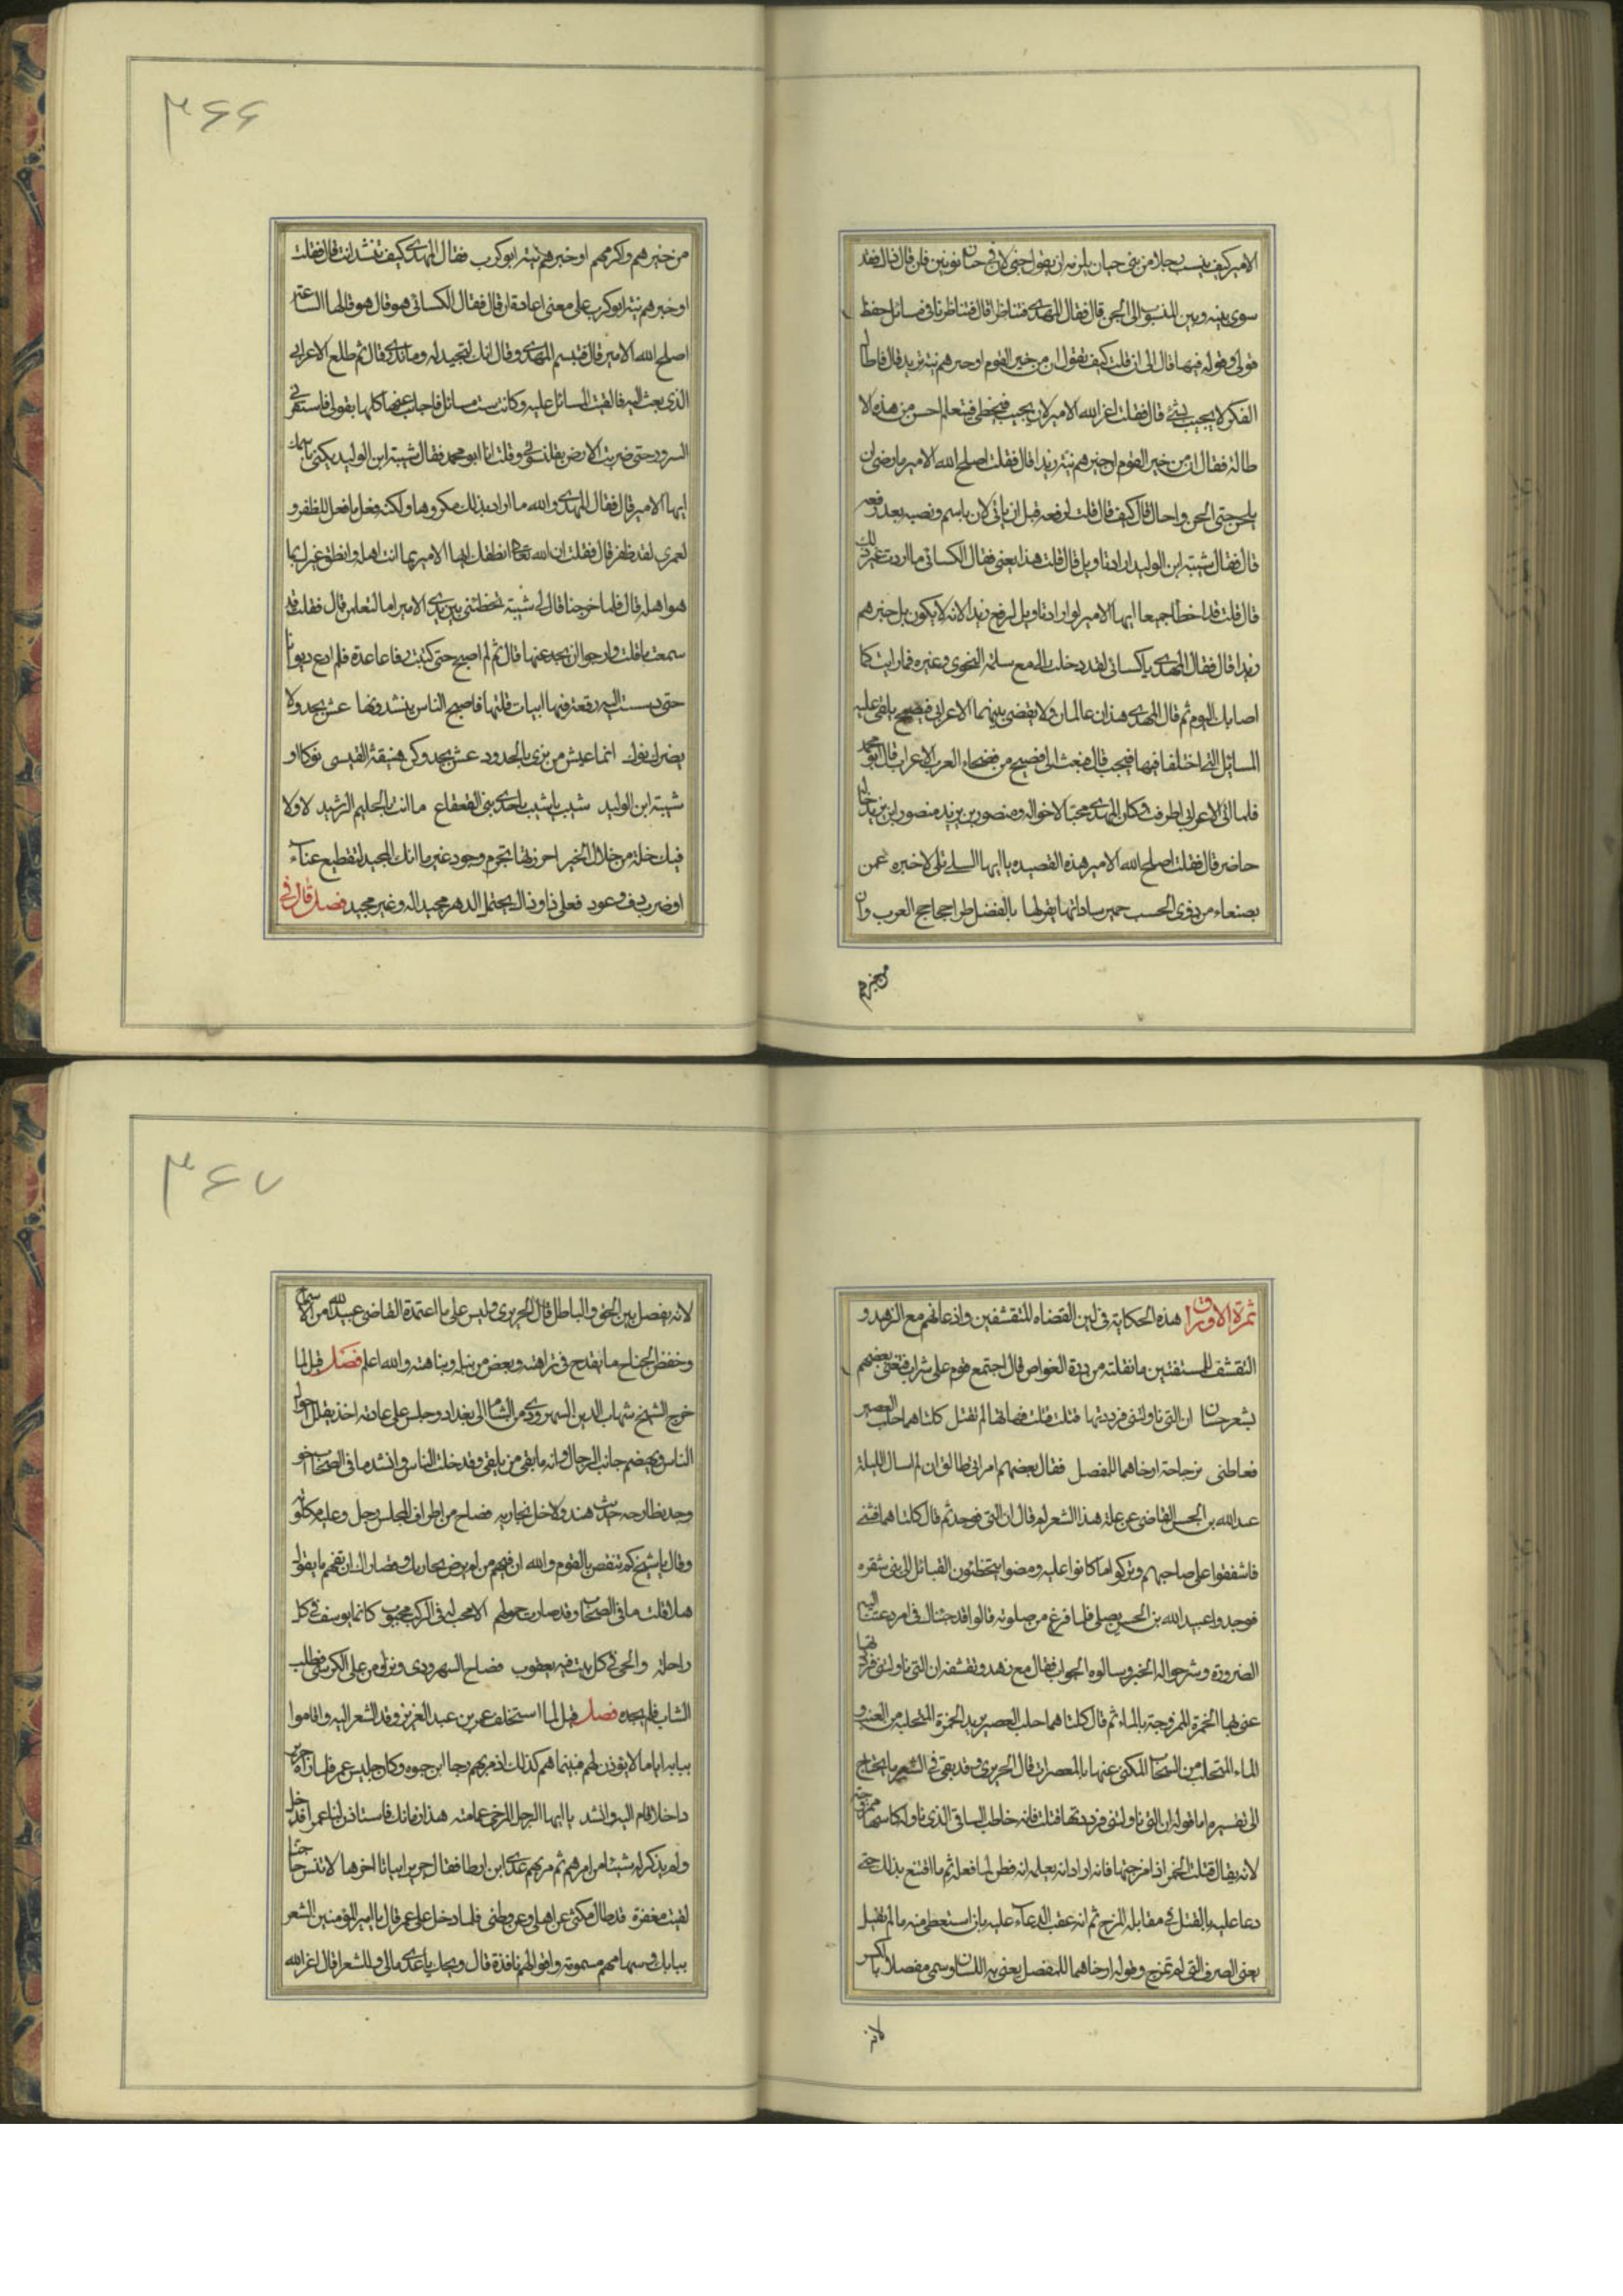 الامير كيف ينسب رجلا من بنى جنان يلزمه ان يقول جنى لان فى جنان نونين فان قال ذلك فقد
سوى بينه وبين المنسوب الى الجن قال فقال المهدى فتناظرا قال فتناظرنا فى مسائل حفظ
قولى وقوله فيها قال الى ان قلت كيف تقول ان من خير القوم او خيرهم نية زيد قال فاطال
الفكر لا يجيب بشئ قال فقلت اعز الله الامير لان يجيب فيخطى فيتعلم احسن من هذه الا
طالة فقال ان من خير القوم او خيرهم نية زيدا قال فقلت اصلح الله الامير ما رضى ان
يلحن حتى لحن واحال قال كيف قال قلت لرفعه قبل ان ياتى لان باسم ونصبه بعد رفعه
قال فقال شيبة ابن الوليد اراد تاويل قال قلت هذا يعنى فقال الكسائى ما اردت غير ذلك
قال قلت قد اخطأ جميعا ايها الامير لو اراد تاويل لرفع زيدا لانه لا يكون بل خيرهم
زيدا قال فقال المهدى يا كسائى لقد دخلت الى مع سلمة النحوى وغيره فما رايت كما
اصابك اليوم ثم قال المهدى هذان عالمان ولا يقضى بينهما الا اعرابى فصيح يلقى عليه
المسائل التى اختلفا فيها فيجب قال فبعث الى فصيح من فصحاء العرب الاعراب قال ابو محمد
فلما اتى الاعرابى اطرقت وكان المهدى محبا لاخواله ومنصور بن يزيد منصور ابن يزيد خال
حاضر قال فقلت اصلح الله الامير هذه القصيده يا ايها السائلى لاخبره عمن
بصنعاء من ذوى الحسب حمير ساداتها يقر لها بالفضل طرا جحاجح العرب وان
من خيرهم
٣٦٦
من خيرهم واكرمهم او خيرهم نية ابو كرب فقال المهدى كيف تنشد انت قال فقلت
او خيرهم نية ابو كرب على معنى اعادة ان قال فقال الكسائى هو قال هو قالها الساعة
اصلح الله الامير قال فتبسم المهدى وقال انك لتجيد له وما تدرى قال ثم طلع الاعرابى
الذى بعث اليه فالقيت المسائل عليه وكانت ست مسائل فاجاب عنها كلها بقولى فاستفزنى
السرور حتى ضربت الارض بقلنسوتى وقلت انا ابو محمد فقال شيبة ابن الوليد يكنى باسمك
ايها الامير قال فقال المهدى والله ما اراد بذلك مكروها ولكنه فعل ما فعل للظفر و
لعمرى لقد ظفر قال فقلت ان الله تعالى انطقك ايها الامير بما انت اهله وانطق غيرك بما
هو اهله قال فلما خرجنا قال لى شيبة تخطئنى بين يدى الامير اما لتعلمن قال فقلت قد
سمعت ما قلت وارجو ان تجد غبها قال ثم لم اصبح حتى كتبت رقاعا عدة فلم ادع ديوانا
حتى دسست اليه رقعة فيها ابيات قلتها فاصبح الناس ينشدونها عش بجد ولا
يضرك نوك انما عيش من ترى بالجدود عش بجد وكن هبنقة القيسى نوكا او
شيبة ابن الوليد شيب يا شيب يا جدى بنى القعقاع ما انت بالحليم الرشيد لا ولا
فيك خلة من خلال الخير احرزتها بحزم وجود غير ما انك المجيد لتقطيع غناء
او ضرب دف وعود فعلى ذا وذاك يحتمل الدهر مجيدا له وغير مجيد فصل قال فى
ثمرة الاوراق هذه الحكاية فى لين القضاه للمتقشفين واذعانهم مع الزهد و
التقشف للمستفتين ما نقلته من درة الغواص قال اجتمع قوم على شراب فتغنى بعضهم
بشعر حسان ان التى ناولتنى فرددتها قتلت قتلت فهاتها لم تقتل كلتاهما حلب العصير
فعاطنى بزجاجة ارخاهما للمفصل فقال بعضهم امراتى طالق ان لم اسال الليلة
عبد الله بن الحسن القاضى عن علة هذا الشعر لم قال ان التى فوحد ثم قال كلتاهما فثنى
فاشفقوا على صاحبهم وتركوا ما كانوا عليه ومضوا يتخطئون القبائل الى بنى شقره
فوجدوا عبيد الله بن الحسن يصلى فلما فرغ من صلوته قالوا قد جئناك فى امر دعتنا اليه
الضرورة وشرحوا له الخبر وسالوه الجواب فقال مع زهده وتقشفه ان التى ناولتنى فرددتها
عنى بها الخمرة الممزوجة بالماء ثم قال كلتاهما حلب العصير يريد الخمرة المتحلبة من العنب و
الماء المتحلب من السحاب المكنى عنها بالمعصرات قال الحريرى وقد بقى فى الشعر ما يحتاج
الى تفسيره اما قوله ان التى ناولتنى فرددتها قتلت فانه خاطب الساقى الذى ناوله كاسا ممزوجة
لانه يقال قتلت الخمر اذا مزجتها فانه اراد انه يعلمه انه فطن لما فعله ثم ما اقتنع بذلك حتى
دعا عليه بالقتل فى مقابلة المزج ثم انه عقب الدعاء عليه بان استعطى منه ما لم يقتل
يعنى الصرف التى لم تمزج وقوله ارخاهما للمفصل يعنى به اللسان وسمى مفصلا بالكسر
لانه
٣٦٧
لانه يفصل بين الحق والباطل قال الحريرى وليس على ما اعتمدة القاضى عبيد الله من الاسماح
وخفض الجناح ما يقدح فى نزاهته وبعض من نبله ونباهته والله اعلم فصل قيل لما
خرج الشيخ شهاب الدين السهروردى من الشام الى بغداد وجلس على عادته اخذ يقلل احوال
الناس ويهضم جانب الرجال وانه ما بقى من يلقى وقد خلت الناس وانشد ما فى الصحاب اخو
وجد نطارحه حديث هند ولا خل نجاريه فصاح من اطراف المجلس رجل وعليه كلوته
وقال يا شيخ كم تنقص بالقوم والله ان فيهم من لم يرض بجاريك وقصارك ان تفهم ما يقول
هلا قلت ما فى الصحاب وقد صارت حمولهم الا محب له فى الركب محبوب كانما يوسف فى كل
راحلة والحى فى كل بيت فيه يعقوب فصاح السهروردى ونزل من على الكرسى فطلب
الشاب فلم يجده فصل قيل لما استخلف عمر بن عبد العزيز وفد الشعرا اليه واقاموا
ببابه اياما لا يوذن لهم فبينما هم كذلك اذ مر بهم رجا ابن حيوه وكان جليس عمر فلما راه جرير
داخلا قام اليه وانشد يا ايها الرجل المرخى عمامته هذا زمانك فاستاذن لنا عمرا قد خل
ولم يذكر له شيئا من امرهم ثم مر بهم عدى ابن ارطا فقال جرير ابياتا اخرها لا تنس حاجتنا
لقيت مغفرة قد طال مكثى عن اهلى وعن وطنى فلما دخل على عمر قال يا امير المؤمنين الشعر
ببابك وسهامهم مسمومة واقوالهم نافذة قال ويحك يا عدى مالى وللشعرا قال اعز الله